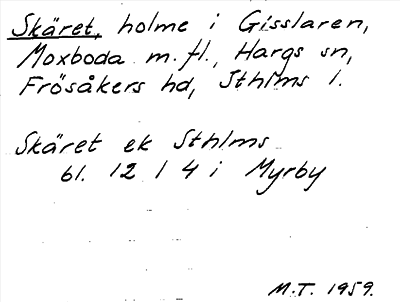 Skäret, holme i Gisslaren,
Moxboda m. fl., Hargs sn,
Frösåkers hd, Sthlms l.
Skäret ek Sthlms
bl. 12 1 4 i Myrby
M.T. 1959.